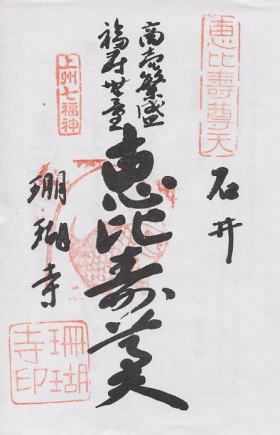 恵比寿尊天
石井
商売繁盛
福寿無量
恵比寿尊天
上州七福神
珊瑚寺
珊瑚
寺印